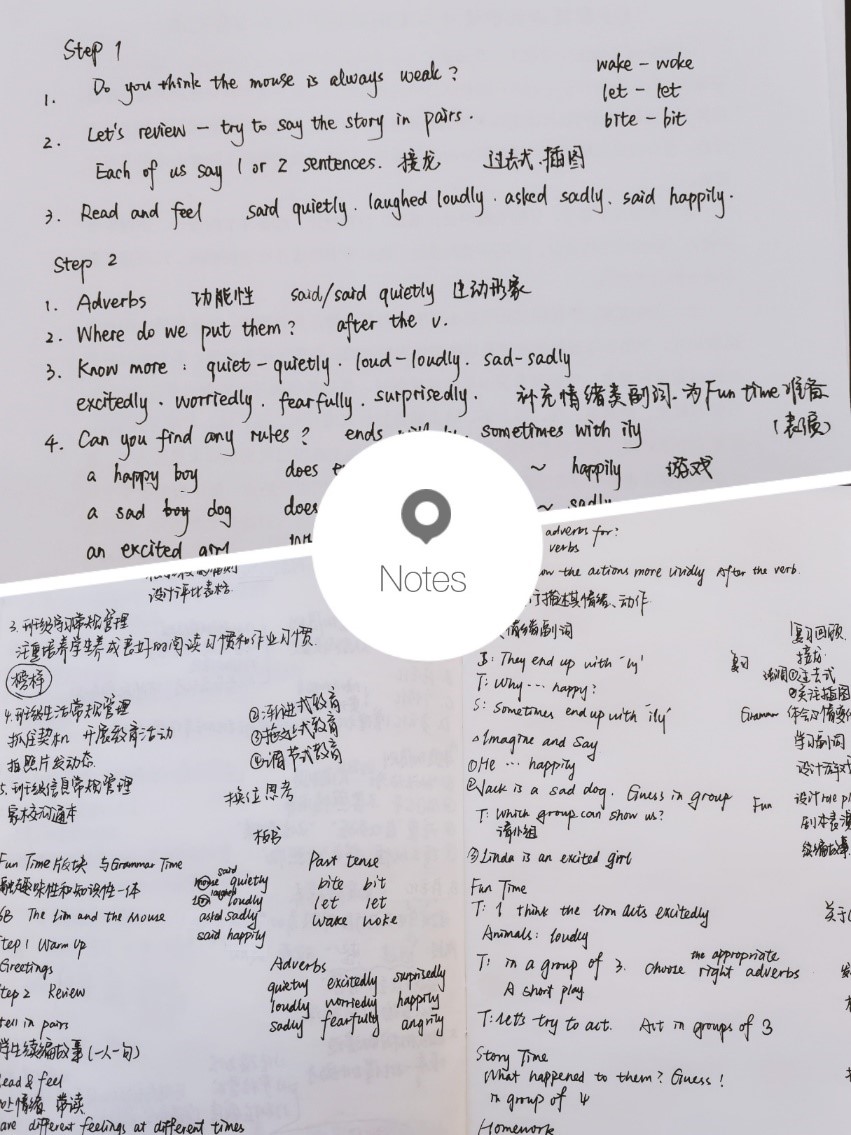 Step 1
1. Do you think the mouse is always weak?
wake - woke
let - let
bite - bit
2. Let's review - try to say the story in pairs.
Each of us say 1 or 2 sentences. 接龙 过去式.插图
3. Read and feel said quietly. laughed loudly. asked sadly. said happily.
Step 2
1. Adverbs 功能性 said/said quietly 生动形象
2. Where do we put them? after the v.
3. Know more: quiet-quietly. loud-loudly. sad-sadly
excitedly. worriedly. fearfully. surprisedly. 补充情绪类副词.为Fun time准备
(表演)
4. Can you find any rules? ends sometimes with ily
a happy boy does ~ happily 游戏
a sad boy dog does ~ sadly
an excited
Notes
设计评比表格
3.班级学习常规管理
注重培养学生养成良好的阅读习惯和作业习惯
榜样
4.班级生活常规管理
抓住契机 开展教育活动
拍照片发动态
5.班级信息常规管理
家校沟通本
②渐进式教育
③
④调节式教育
换位思考
板书
Fun Time 版块 与Grammar Time
融趣味性和知识性一体
6B The Lion and the Mouse
Step 1 Warm up
Greetings
Step 2 Review
tell in pairs
学生续编故事(一人一句)
Read & feel
情绪 带读
are different feelings at different times
said
mouse quietly
laughed
loudly
asked sadly
said happily
Past tense
bite bit
let let
wake woke
Adverbs
quietly excitedly suprisedly
loudly worriedly happily
sadly fearfully angrily
adverbs for?
verbs
the actions more vividly After the verb.
描述其情绪、动作
情绪副词
S: They end up with 'ly'
T: Why ... happy?
S: Sometimes end up with 'ily'
△Imagine and Say
①He ... happily
②Jack is a sad dog. Guess in group
T: Which group can show us?
请小组
③Linda is an excited girl
Fun Time
T: I think the lion acts excitedly
Animals: loudly
T: in a group of 3. Choose the appropriate right adverbs
A short play
T: let's try to act. Act in groups of 3
Story Time
What happened to them? Guess!
in group of 4
Homework
复习回顾
复习 接龙
强调①过去式
②关注插图
Grammar 体会心情变化
学习副词
设计游戏
Fun 设计role pl
剧本表演
续编故事
关于